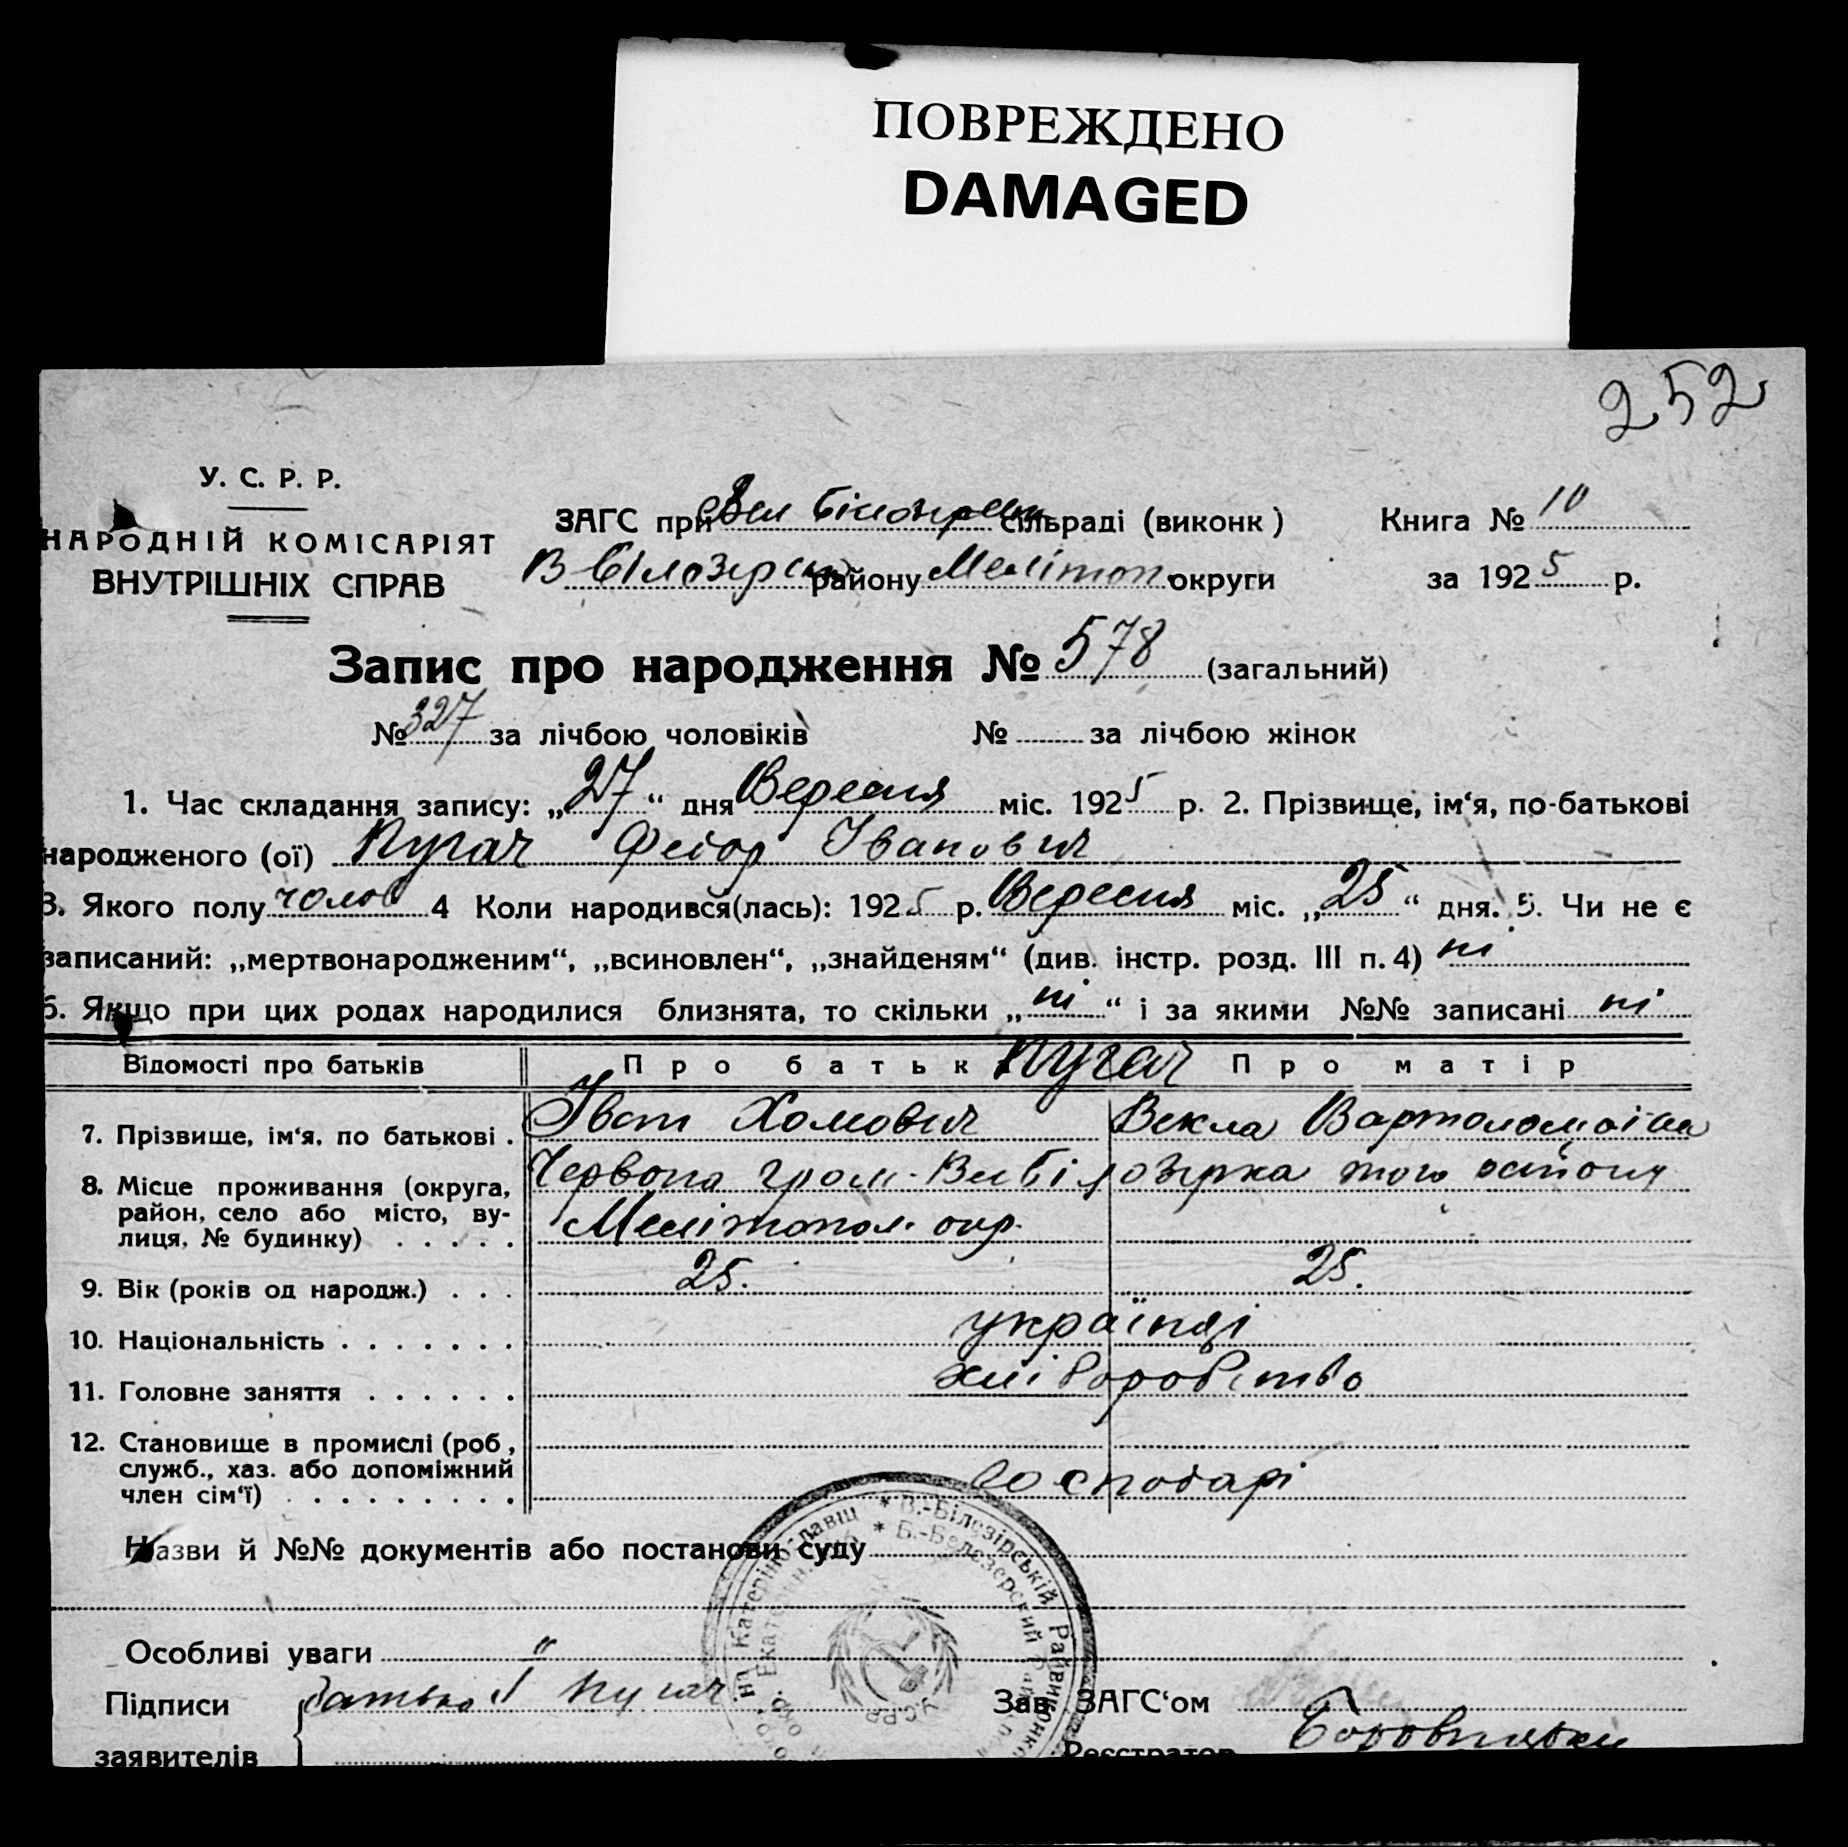 ПОВРЕЖДЕНО
DAMAGED
252
У. С. Р. Р.
НАРОДНІЙ КОМІСАРІЯТ
ВНУТРІШНІХ СПРАВ
ЗАГС при Вел Білозірськ сільраді (виконк) Книга № 10
В Білозірськ району Мелітоп. округи за 1925 р.
Запис про народження № 578 (загальний)
№ 327 за лічбою чоловіків № за лічбою жінок
1. Час складання запису: „27“ дня Вересня міс. 1925 р. 2. Прізвище, ім‘я, по-батькові
народженого (ої) Пугач Федор Іванович
3. Якого полу чолов 4 Коли народився(лась): 1925 р. Вересня міс. „25“ дня. 5. Чи не є
записаний: „мертвонародженим“, „всиновлен“, „знайденям“ (див. інстр. розд. III п. 4) ні
6. Якщо при цих родах народилися близнята, то скільки „ні“ і за якими №№ записані ні
Відомості про батьків Про батьк Пугач Про матір
7. Прізвище, ім‘я, по батькові . Іван Хомович Векла Вартоломаівна
8. Місце проживання (округа, район, село або місто, вулиця, № будинку) . . . . . Червона гром. Вел Білозірка того району
Мелітопол. окр.
9. Вік (років од народж.) . . . 25. 25.
10. Національність . . . . . . . українці
11. Головне заняття . . . . . . хліборобство
12. Становище в промислі (роб, служб., хаз. або допоміжний член сім‘ї) . . . . . . . . . господарі
Назви й №№ документів або постанови суду
Особливі уваги "
Підписи батько І Пугач Зав. ЗАГС‘ом
заявителів Реєстратор
В.-Білезірській Райвиконко
Б.-Белозерский
У.С.Р.Р.